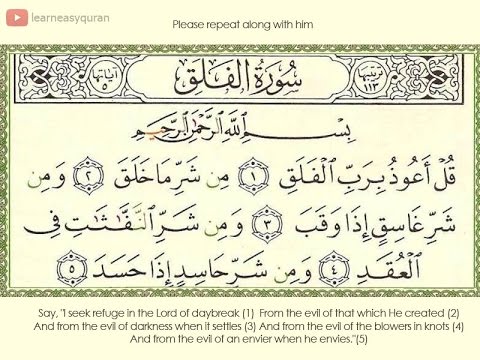 learneasyquran
Please repeat along with him
ترتيبها ١١٣ سُورَةُ الفَلَقِ آياتها ٥
بِسْمِ اللَّهِ الرَّحْمَٰنِ الرَّحِيمِ
قُلْ أَعُوذُ بِرَبِّ الْفَلَقِ ١ مِن شَرِّ مَا خَلَقَ ٢ وَمِن
شَرِّ غَاسِقٍ إِذَا وَقَبَ ٣ وَمِن شَرِّ النَّفَّاثَاتِ فِي
الْعُقَدِ ٤ وَمِن شَرِّ حَاسِدٍ إِذَا حَسَدَ ٥
Say, "I seek refuge in the Lord of daybreak (1) From the evil of that which He created (2)
And from the evil of darkness when it settles (3) And from the evil of the blowers in knots (4)
And from the evil of an envier when he envies."(5)